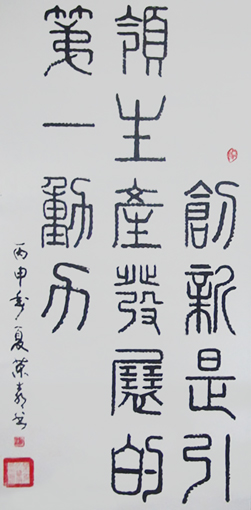 創新是引
領生產發展的
第一動力
丙申春夏榮